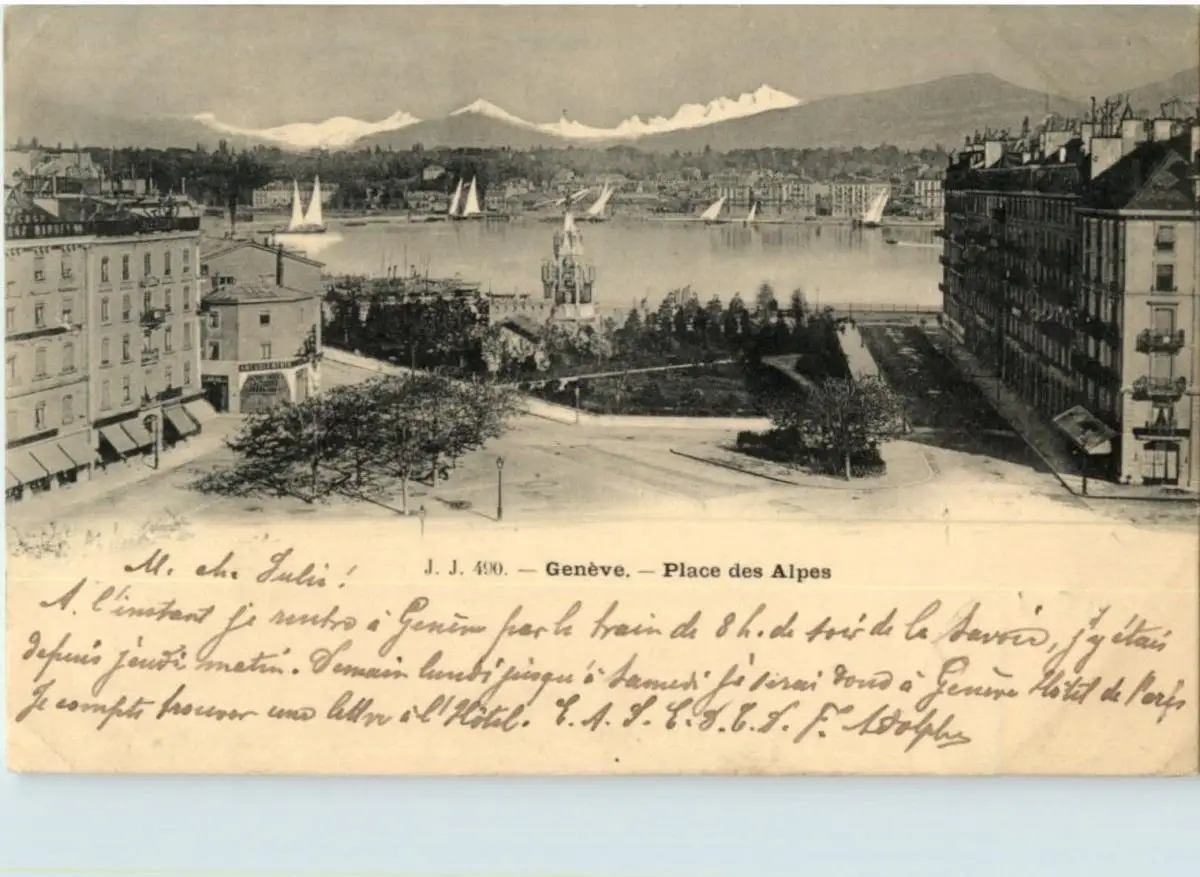 J. J. 490. — Genève. — Place des Alpes
M. ch. Julie!
A l'instant je rentre à Genève par le train de 8 h. de soir de la Savoie, j'y étais
depuis jeudi matin. Demain lundi jusqu'à samedi je serai donc à Genève Hôtel de Paris
Je compte trouver une lettre à l'Hôtel. E. A. S. E. D. T. S. F. Adolphe